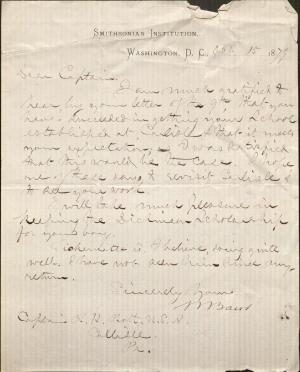 SMITHSONIAN INSTITUTION.
WASHINGTON, D. C., Oct 15 1879
Dear Captain
I am much gratified to
hear by your letter of the 9th. that you
have succeeded in getting your school
established at Carlisle & that it meets
your expectations. I was satisfied
that this would be the case. I hope
one of these days to revisit Carlisle &
to see your work
I will take much pleasure in
keeping the Dickinson scholarship
for your boy.
is I believe, doing quite
well. I have not seen him since my
return.
Sincerely yours
Baird
Captain R. H. Pratt. U.S.A
Carlisle
Pa.